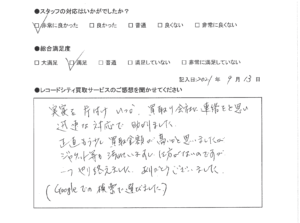 ●スタッフの対応はいかがでしたか？
□非常に良かった □良かった □普通 □良くない □非常に良くない
●総合満足度
□大満足 □満足 □普通 □満足していない □非常に満足していない
記入日2021年9月13日
●レコードシティ買取サービスのご感想を聞かせてください
実家を片付け 買取り会社に連絡をと思い
迅速な対応で助かりました。
正直もう少し買取金額が高いかと思いましたが
ジャケット等も 仕方がないのですが
一つやり終えました。ありがとうございました。
(Googleでの検索で選びました)